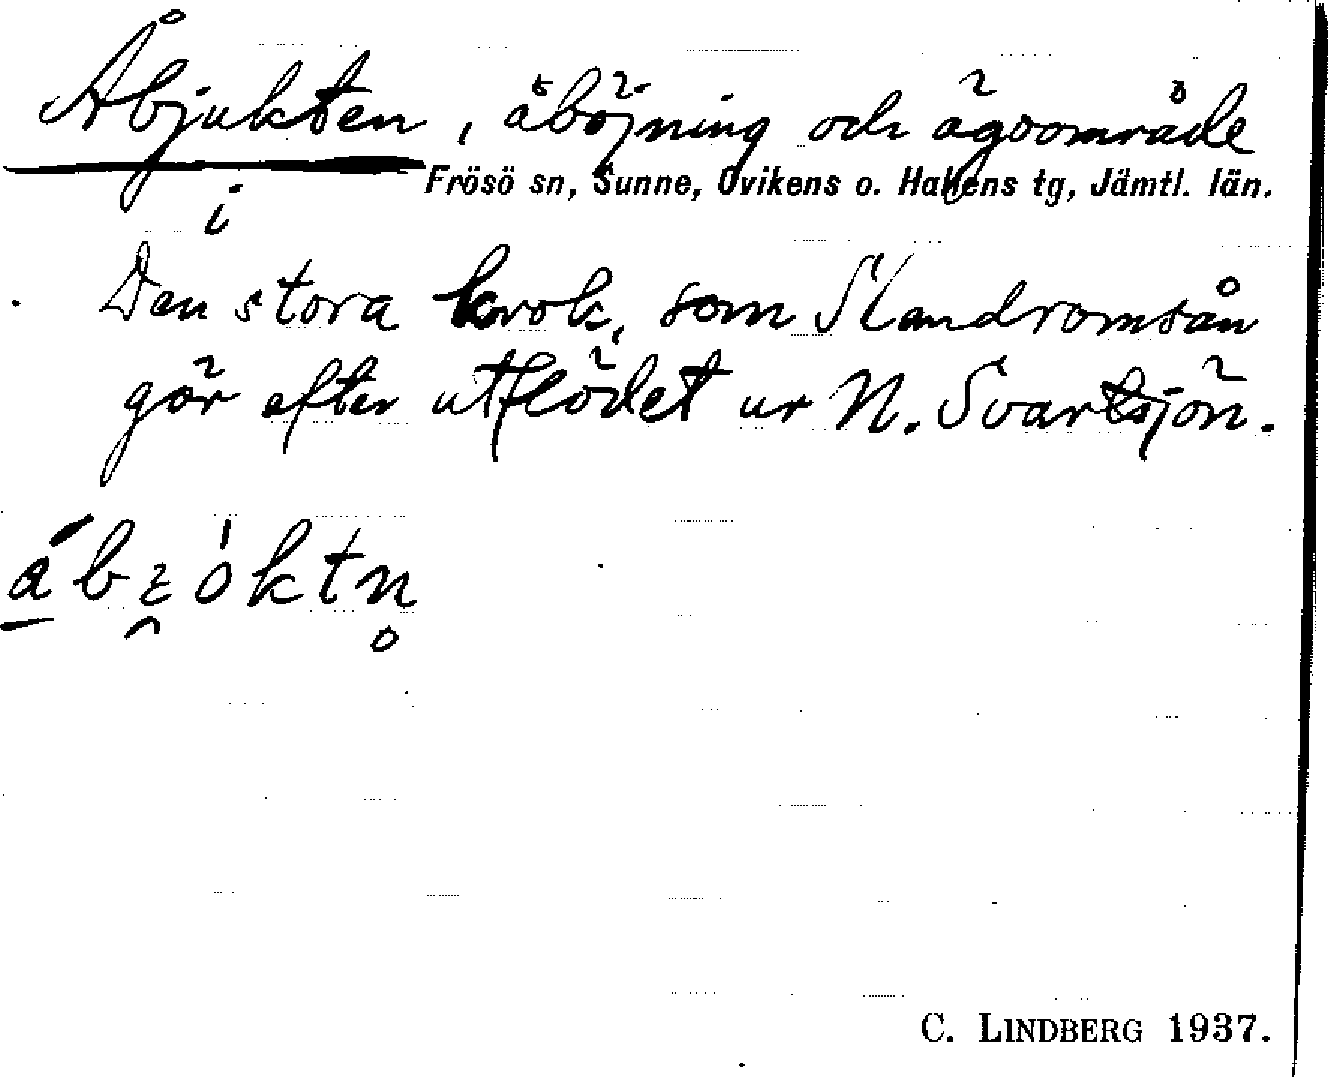 Åbjukten, åböjning och ägoområde
Frösö sn, Sunne, Ovikens o. Hallens tg, Jämtl. län.
i
Den stora krok, som Slandromsån
gör efter utflödet ur N. Svartsjön.
C. LINDBERG 1937.